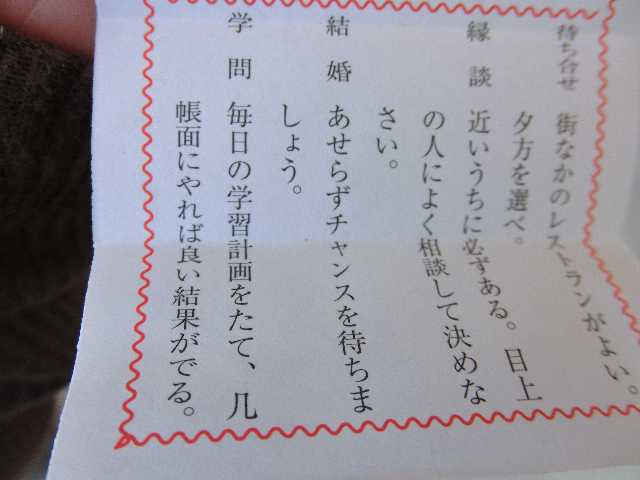 待ち合せ 街なかのレストランがよい。
夕方を選べ。
縁談 近いうちに必ずある。目上
の人によく相談して決めな
さい。
結婚 あせらずチャンスを待ちま
しょう。
学問 毎日の学習計画をたて、几
帳面にやれば良い結果がでる。